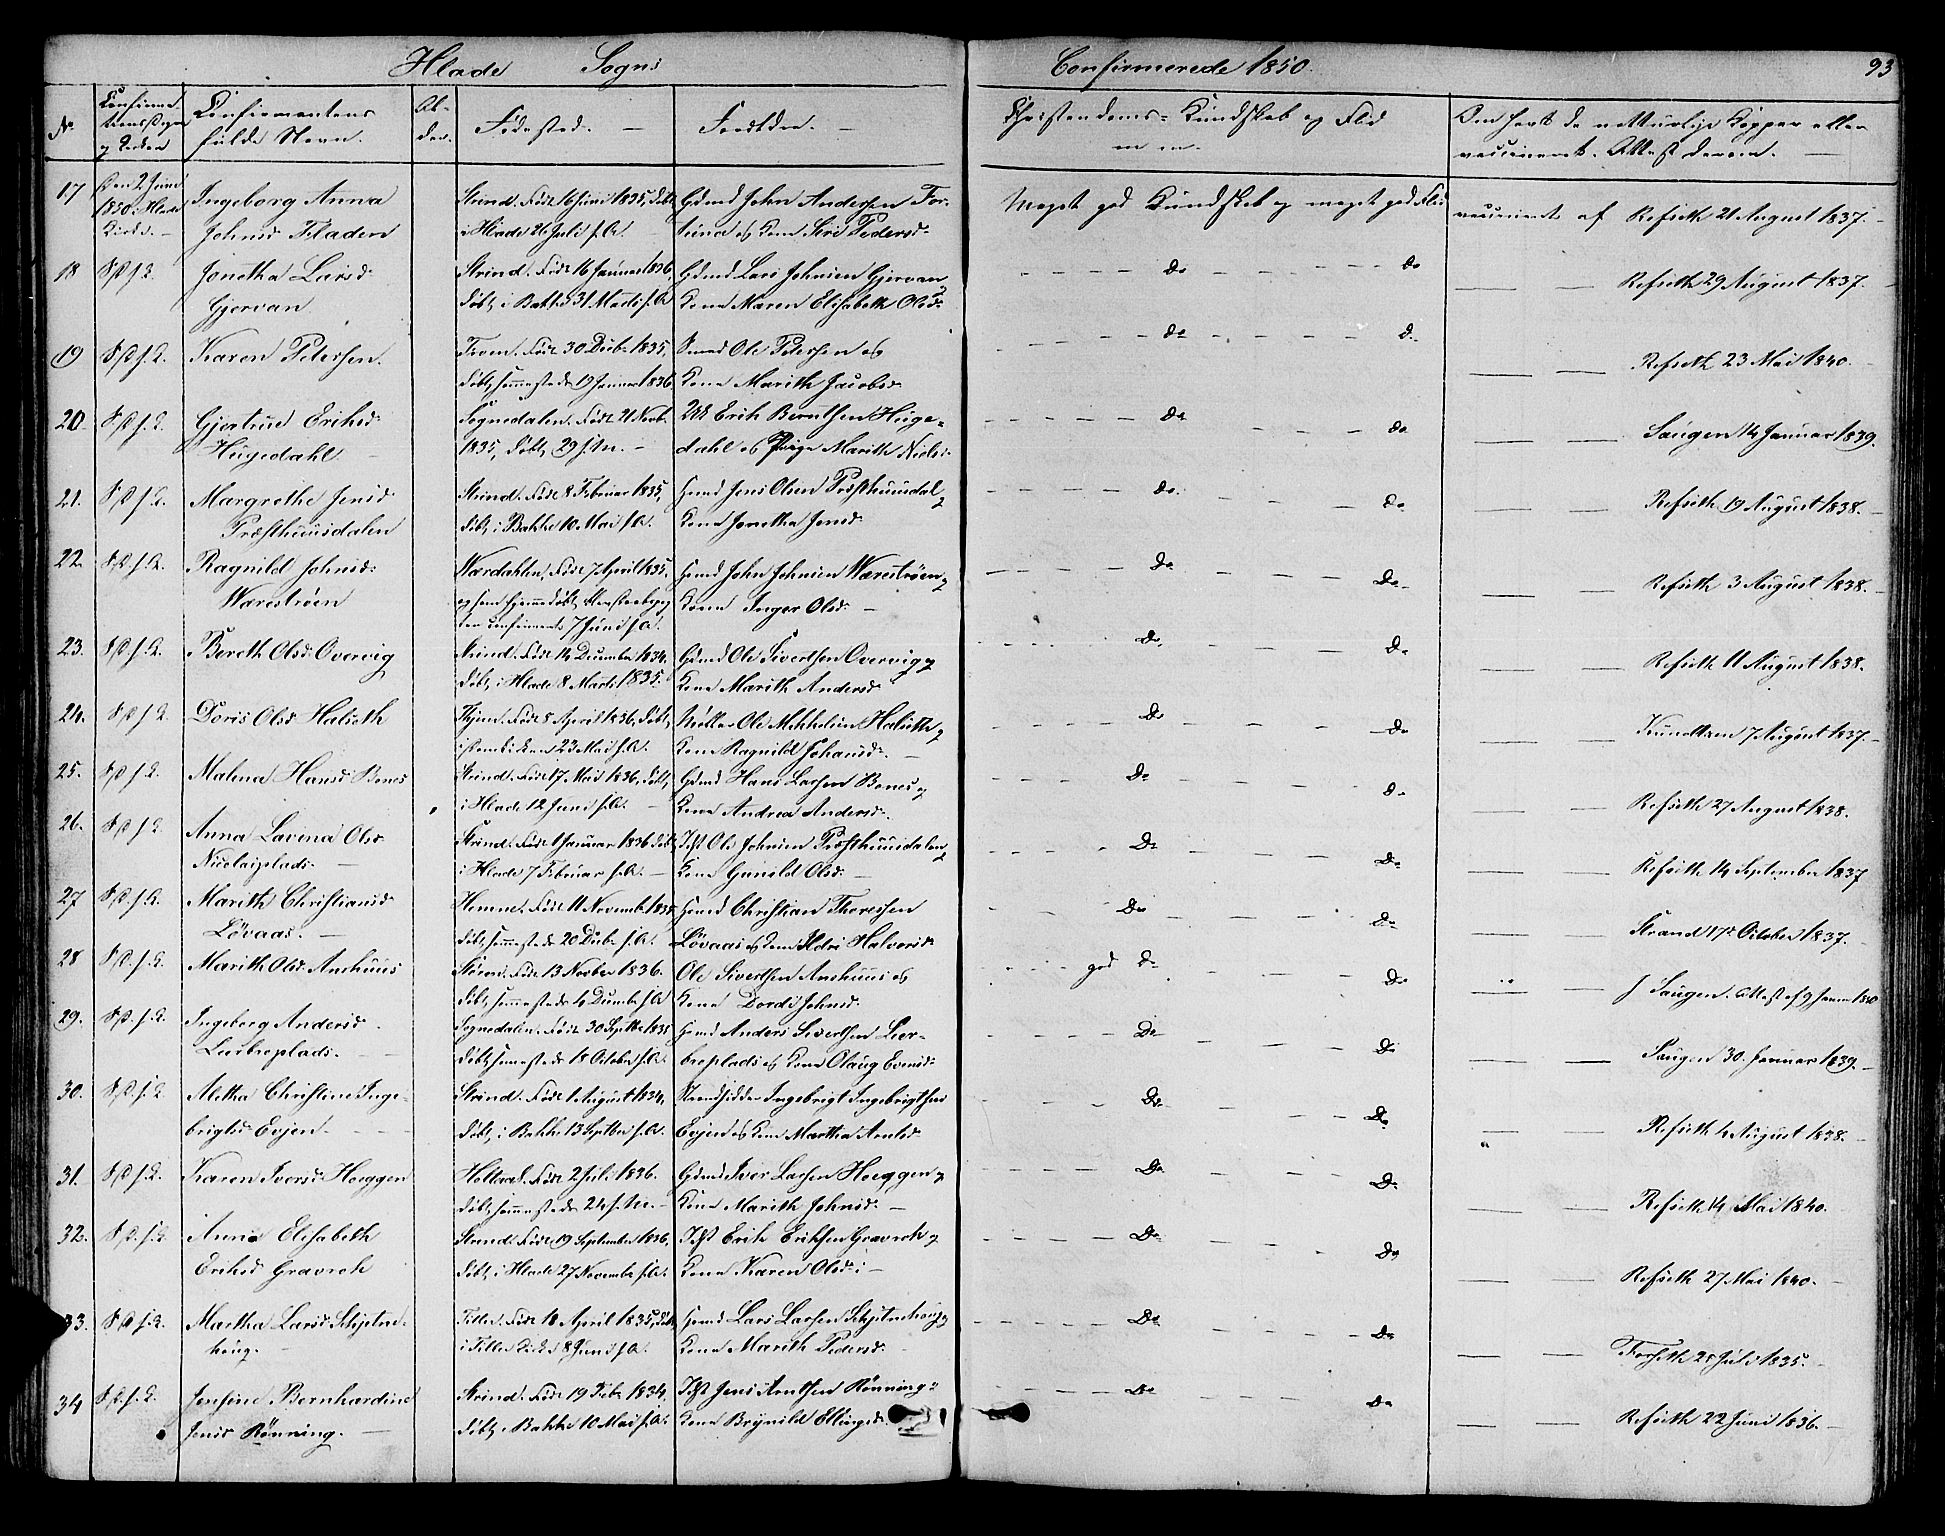 Hlade Sogn
Confirmerede 1850.
93
No
Confirmationsdagen og Kirken
Confirmantens fulde Navn.
Alder.
Fødested.
Forældre.
Christendoms-Kundskab og Flid
m. m.
Om havt de naturlige Kopper eller
vaccineret. Attest derom.
17 Den 2 Juni 1850 i Hlade Kirke. Ingeborg Anna Johnsd Fladen
Strind. Født 16 Juni 1835, døbt i Hlade 26 Juli s.A.
Gdmd John Andersen og Kone Siri Pedersd.
Meget god Kundskab og meget god Flid
vaccineret af Refseth 21 August 1837.
18 Jonetha Larsd Gjervan
Strind. Født 16 Januar 1836, døbt i Bakke 31 Marts s.A.
Gdmd Lars Johnsen Gjervan og Kone Maren Elisabeth Olsd.
do do
Refseth 29 August 1837.
19 Karen Petersen.
Trom. Født 30 Decbr 1835, døbt sammesteds 19 Januar 1836
Smed Ole Petersen og Kone Marith Jacobsd.
do do
Refseth 23 Mai 1840.
20 Gjertrud Eriksd Hugedahl
Sognedalen. Født 21 Novb. 1835, døbt 29 s.M.
Erik Berntsen Hugedahl og Pige Marith Nielsd.
do do
Saugen 14 Januar 1839.
21. Margrethe Jensd Præsthuusdalen
Strind. Født 8 Februar 1835, døbt i Bakke 10 Mai s.A.
Hmd Jens Olsen Præsthuusdal og Kone Jonetha Jensd
do do
Refseth 19 August 1838.
22. Ragnild Johnsd Wærestrøen
Wærdahlen, Født 7 April 1835.
Hmd John Johnsen Wærestrøen og Kone Inger Olsd.
do do
Refseth 3 August 1838.
23. Bereth Olsd Overvig
Strind. Født 14 December 1834. døbt i Hlade 8 Marts 1835.
Gdmd Ole Sivertsen Overvig og Kone Marith Andersd
do do
Refseth 11 August 1838.
24. Doris Olsd Halseth
Født 5 April 1836, døbt 23 Mai s.A.
Møller Ole Mikkelsen Halseth og Kone Ragnild Johansd.
do do
7 August 1837.
25. Malena Hansd Bones
Strind. Født 17 Mai 1836, døbt i Hlade 12 Juni s.A.
Gdmd Hans Larsen Bones og Kone Andrea Andersd.
do do
Refseth 27 August 1838.
26. Anna Lavina Olsd Nicolaiplads.
Strind. Født 1 Januar 1836 døbt i Hlade 7 Februar s.A.
Ole Johnsen Præsthuusdalen og Kone Gunild Olsd.
do do
Refseth 14 September 1837
27 Marith Christiansd Løvaas.
Hemne. Født 11 Novemb. 1835 døbt sammesteds 20 Decbr s.A.
Hmd Christian Thoresen Løvaas og Kone Ildri Halvorsd.
do do
Strand 17de October 1837.
28 Marith Olsd Aushuus
Støren. Født 13 Novber 1836. døbt sammesteds 4 Decembr s.A
Ole Sivertsen Aushuus og Kone Dordi Johnsd.
god do do
Saugen. Attest af 9 Januar 1840
29. Ingeborg Andersd Leerbroplads.
Sognedalen. Født 30 Septbr 1835 døbt sammesteds 18 October s.A.
Hmd Anders Sivertsen Leerbroplads og Kone Olaug Evensd.
do do
Saugen 30. Januar 1839.
30. Metha Christine Ingebrigtsd Evjen.
Strind. Født 1 August 1834, døbt i Bakke 13 Septber s.A.
Strandsidder Ingebrigt Ingebrigtsen Evjen og Kone Martha Arntsd.
do do
Refseth 4 August 1838.
31. Karen Iversd Hoeggen
Holtval. Født 2 Juli 1836. døbt sammesteds 24 s.M.
Gdmd Iver Larsen Hoeggen og Kone Marith Johnsd.
do do
Refseth 14 Mai 1840.
32. Anna Elisabeth Eriksd Gravrok
Strind. Født 19 September 1836, døbt i Hlade 27 Novembr s.A.
Erik Eriksen Gravrok og Kone Karen Olsd.
do do
Refseth 27 Mai 1840.
33. Martha Larsd Skjetnehaug.
Tiller. Født 18 April 1835, døbt i Tiller Kirke 8 Juni s.A.
Hmd Lars Larsen Skjetnehaug og Kone Marith Pedersd.
do do
Forseth 28 Juli 1835.
34 Josefine Bernhardine Jensd Rønning.
Strind. Født 19 Febr 1834. døbt i Bakke 10 Mai s.A.
Jens Arntsen Rønning og Kone Brynild Ellingsd.
do do
Refseth 22 Juni 1836.